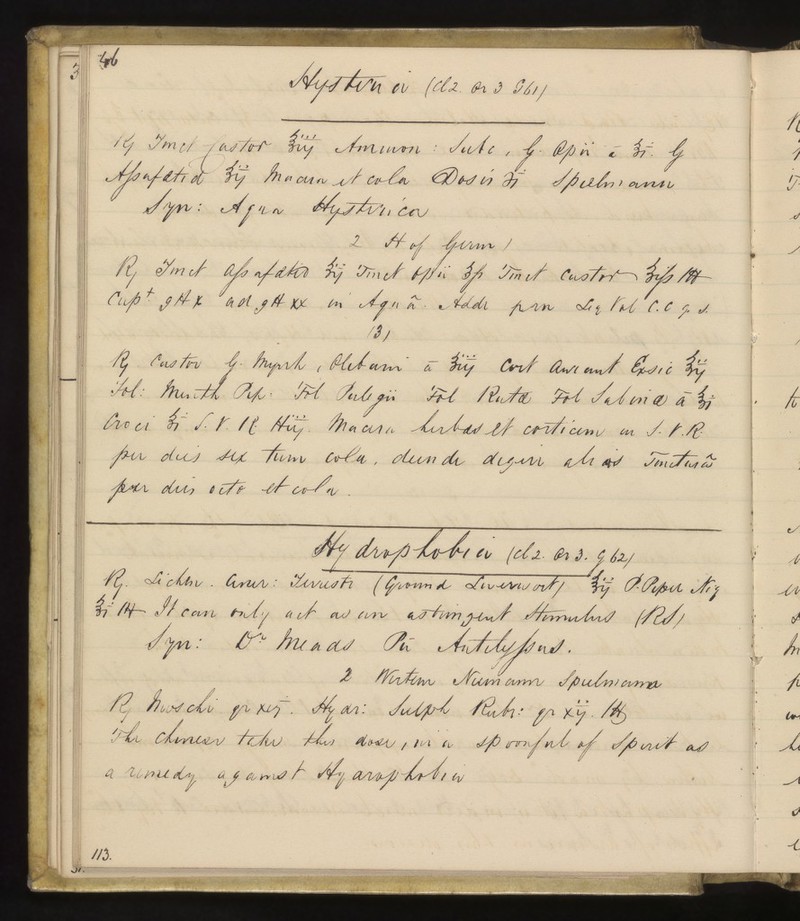 Hysteria (Cl 2 Or 3 G 61)
℞ Tinct Castor ℥iij Ammon: Subc, G. Opii ā ʒi. G
Assafœtid ℥ij Macera et cola Dosis ʒi Spielmann
Syn: Aqua Hysterica
2
℞ Tinct Assafœtid ℥ij Tinct Opii ℥ſs Tinct Castor
Capt gtt x ad gtt xx in Aquā. Adde prn Liq Vol C.C q s.
(3)
℞ Castor G. Myrrh, Olibani ā ℥iij Cort Aurant Exsic ℥ij
Fol: Menth Pip: Fol Pulegii Fol Rutæ Fol Sabinæ ā ℥i
Croci ℥i S. V. R Macera herbas et corticem in S. V. R.
per dies sex tum cola, deinde digeri Tincturā
per dies octo et cola.
Hydrophobia (Cl 2. Or 3. G 62)
℞. Lichen. Ciner: Terrestr (Ground Liverwort) ℥ij P. Piper Nig
℥i It can only act as an astringent Stimulus (RS)
Syn: Dr Meads Pu Antilyssus.
2 Neumann Spielmann
℞ Moschi gr xvj. Hydr: Sulph Rubr: gr xij.
The Chinese take this dose, in a spoonful of Spirit as
a remedy against Hydrophobia
113.